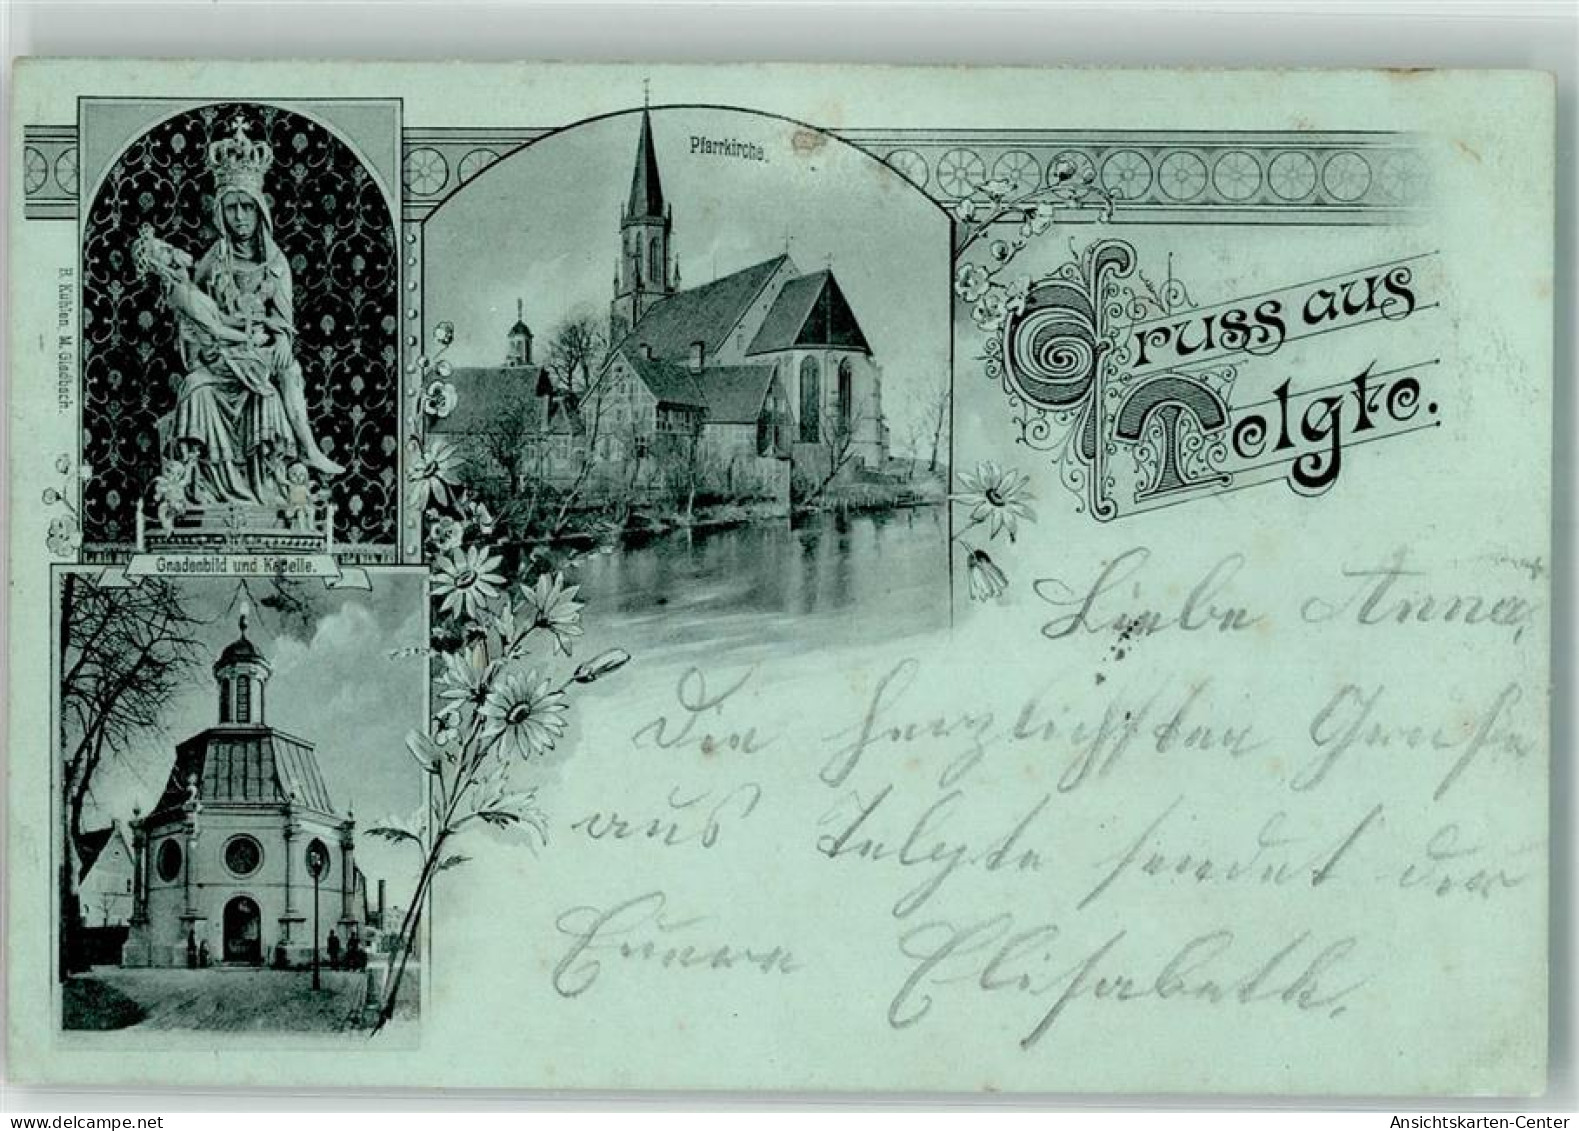 Pfarrkirche.
B. Kühlen. M. Gladbach.
Gruss aus
Telgte.
Gnadenbild und Kapelle.
Liebe Anna,
Die herzlichsten Grüße
aus Telgte sendet der
Elisabeth.
www.delcampe.net
Ansichtskarten-Center